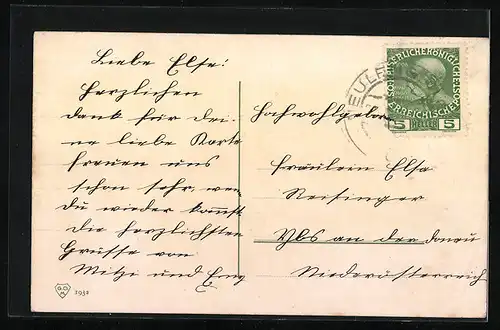 Liebe Else!
Herzlichen
Dank für Dei-
ne liebe Karte
freuen uns
schon sehr, wen
Du wieder kommst
die herzlichsten
Grüsse von
Mitzi und
1932
KAISERLICHEKÖNIGLICHE
ÖSTERREICHISCHE
5 HELLER 5
Hochwohlgeboren
Fräulein Elsa
Reisinger
Ybs an der Donau
Niederösterreich